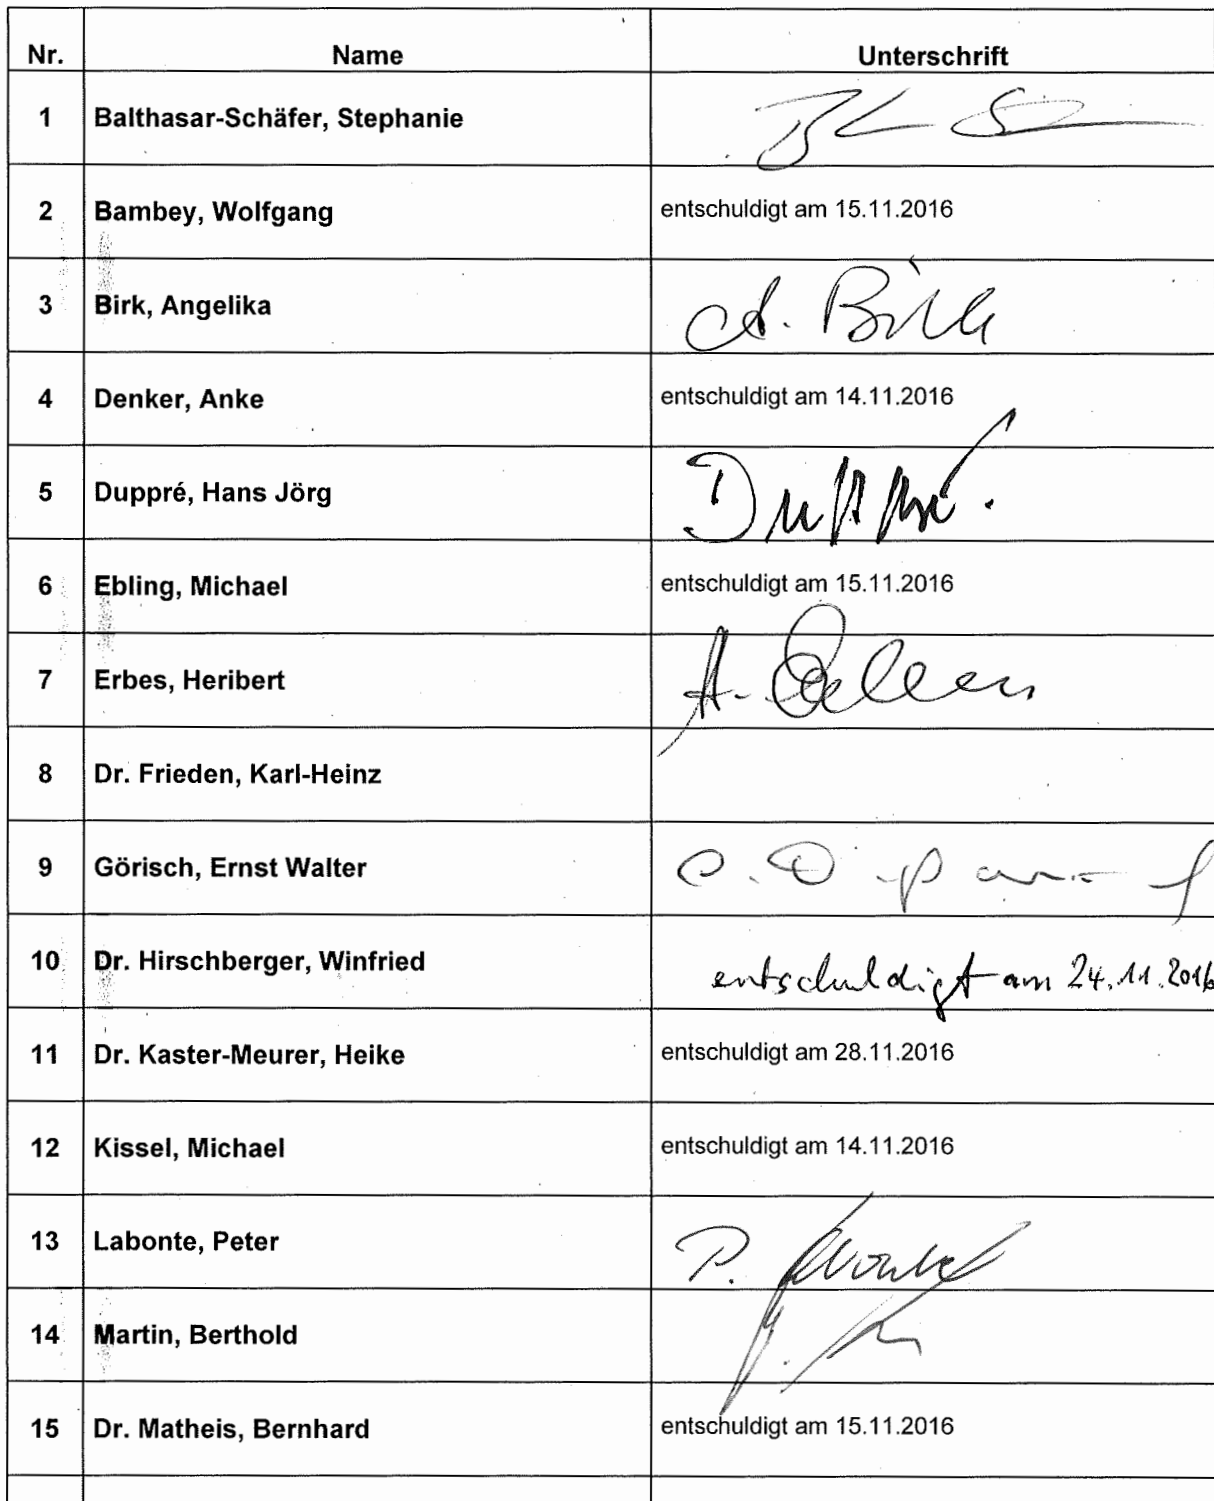 Nr. Name Unterschrift
1 Balthasar-Schäfer, Stephanie
2 Bambey, Wolfgang entschuldigt am 15.11.2016
3 Birk, Angelika A. Birk
4 Denker, Anke entschuldigt am 14.11.2016
5 Duppré, Hans Jörg Duppré.
6 Ebling, Michael entschuldigt am 15.11.2016
7 Erbes, Heribert
8 Dr. Frieden, Karl-Heinz
9 Görisch, Ernst Walter
10 Dr. Hirschberger, Winfried entschuldigt am 24.11.2016
11 Dr. Kaster-Meurer, Heike entschuldigt am 28.11.2016
12 Kissel, Michael entschuldigt am 14.11.2016
13 Labonte, Peter
14 Martin, Berthold
15 Dr. Matheis, Bernhard entschuldigt am 15.11.2016